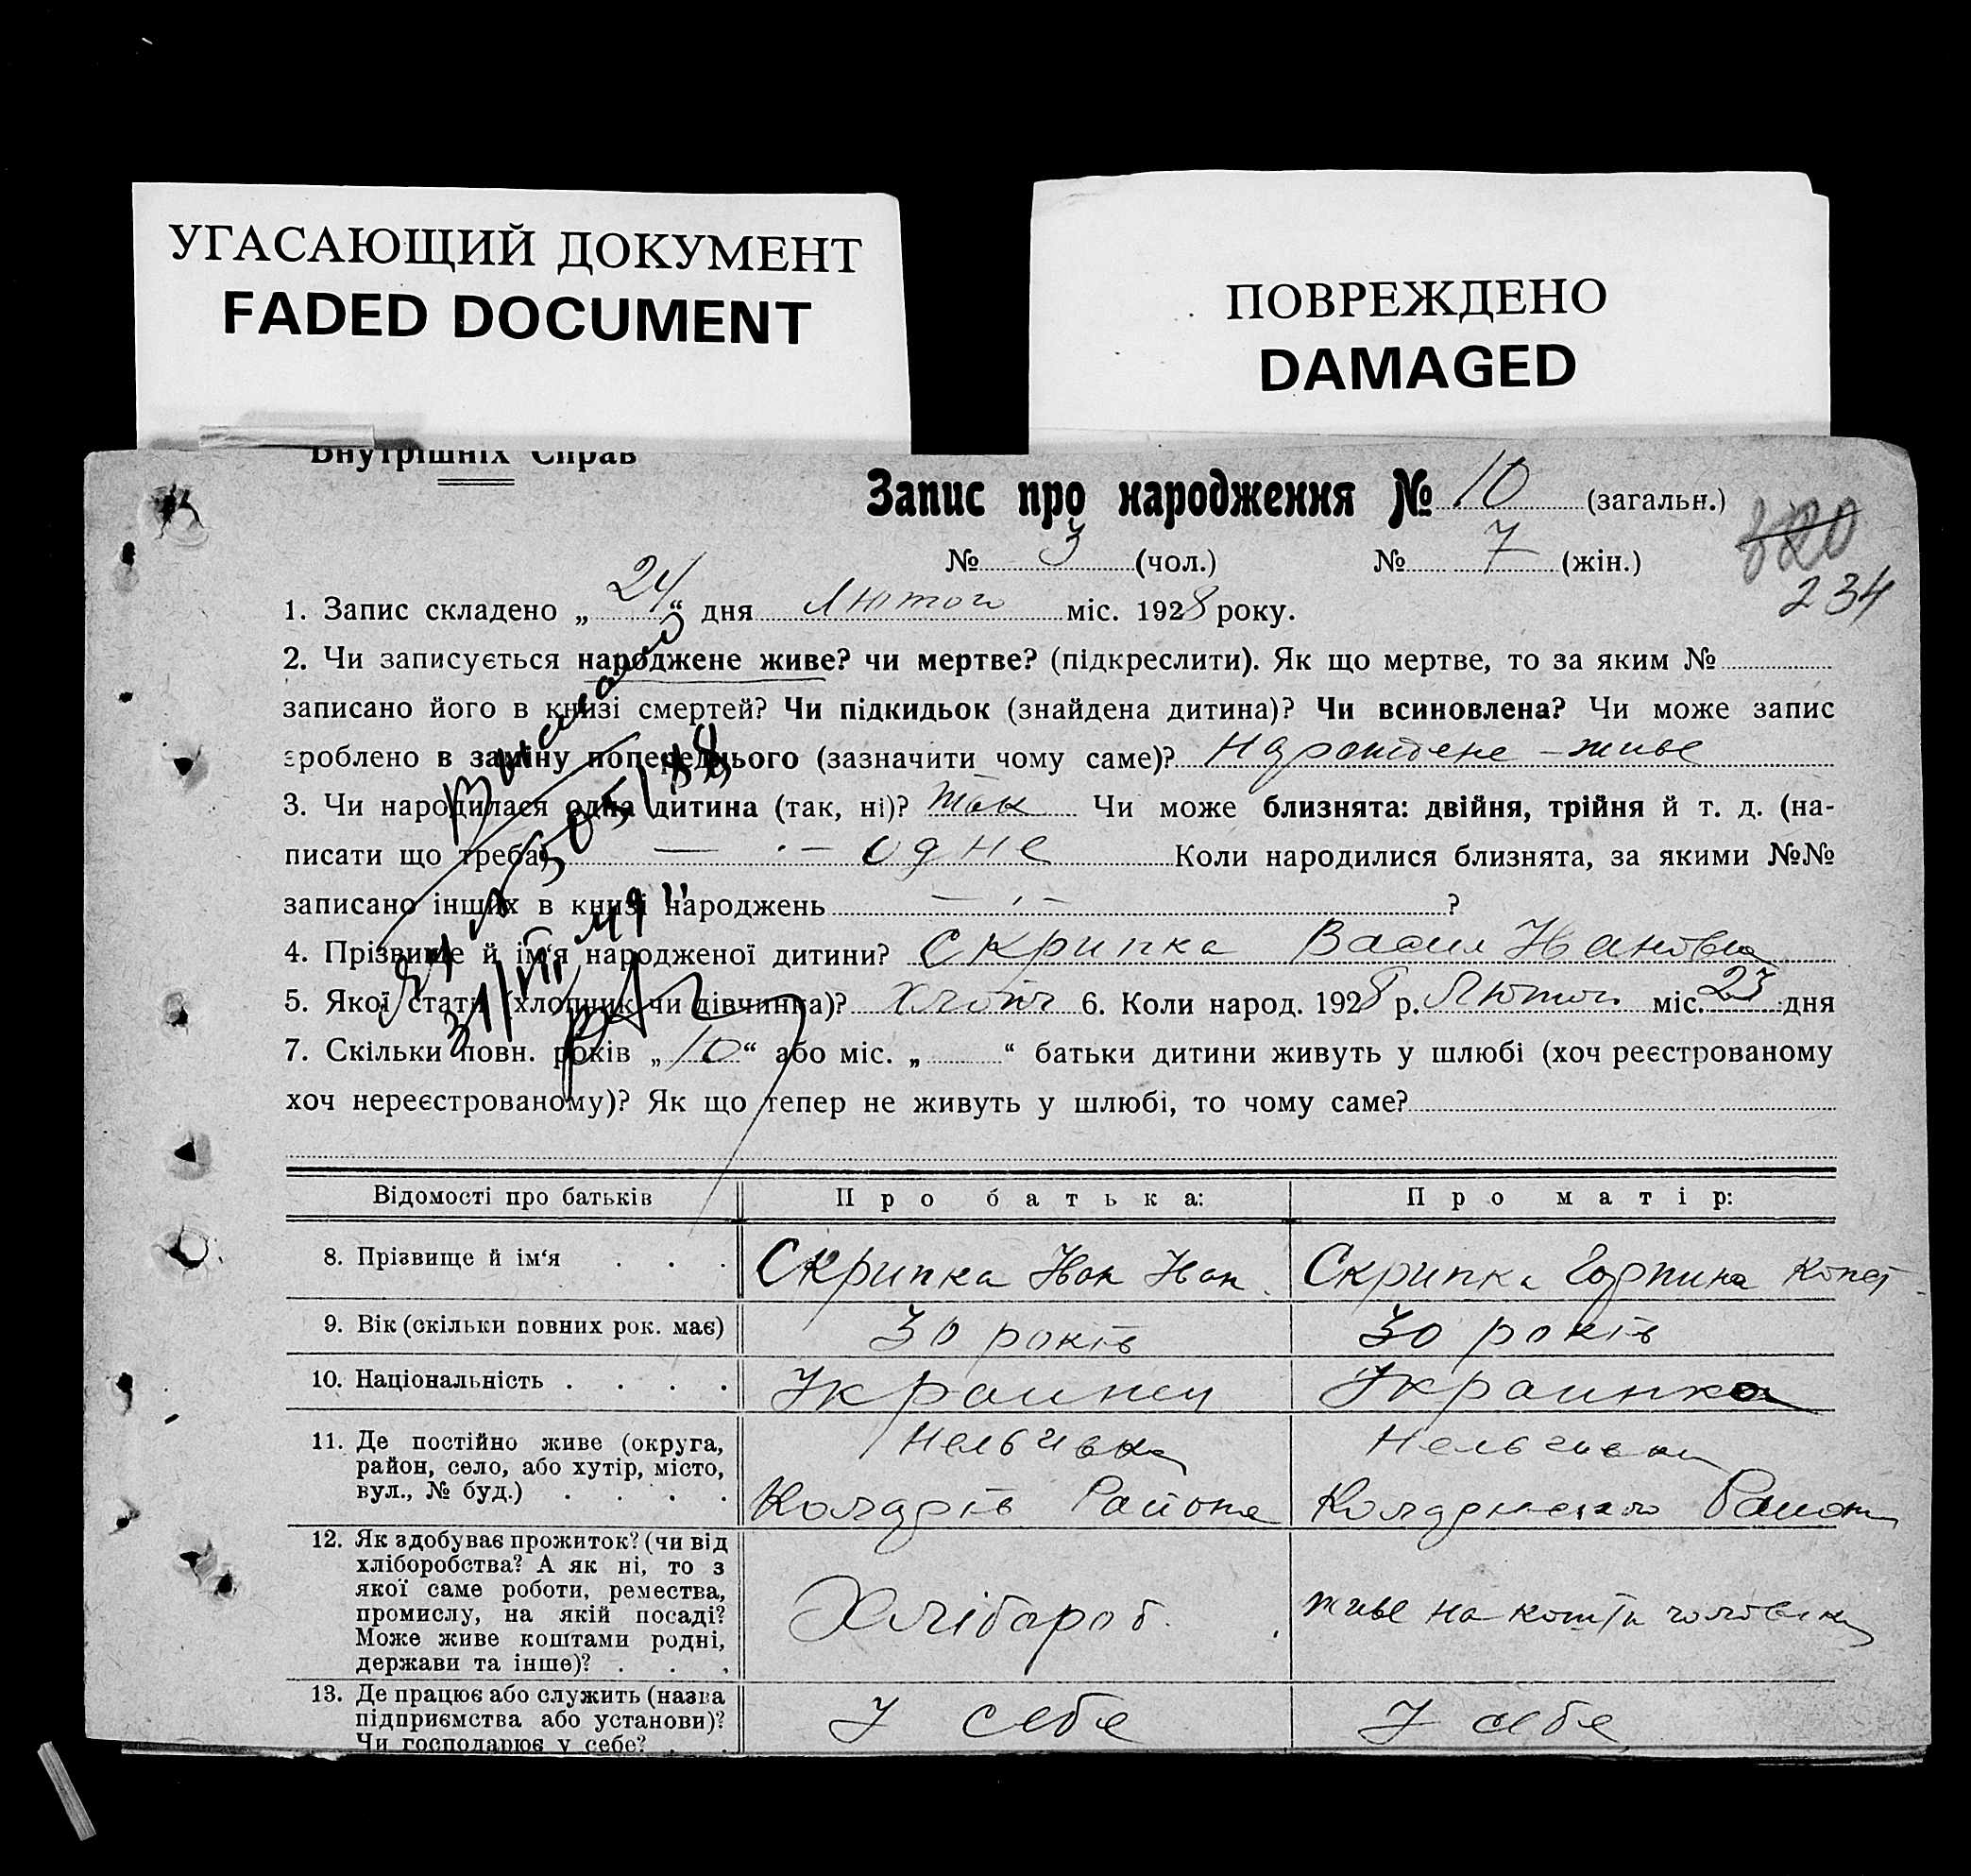 УГАСАЮЩИЙ ДОКУМЕНТ
FADED DOCUMENT
ПОВРЕЖДЕНО
DAMAGED
Внутрішніх Справ
Запис про народження № 10 (загальн.)
№ 3 (чол.) № 7 (жін.)
234
1. Запис складено „24“ дня Лютого міс. 1928 року.
2. Чи записується народжене живе? чи мертве? (підкреслити). Як що мертве, то за яким №
записано його в книзі смертей? Чи підкидьок (знайдена дитина)? Чи всиновлена? Чи може запис
зроблено в заміну попереднього (зазначити чому саме)? Народжене – живе
3. Чи народилася одна дитина (так, ні)? так Чи може близнята: двійня, трійня й т. д. (на-
писати що треба) — · — одне Коли народилися близнята, за якими №№
записано інших в книзі народжень — · — ?
4. Прізвище й ім‘я народженої дитини? Скрипка Васил Иванович
5. Якої статі (хлопчик чи дівчинка)? хлопч 6. Коли народ. 1928 р. Лютого міс. 23 дня
7. Скільки повн. років „10“ або міс. „ “ батьки дитини живуть у шлюбі (хоч реєстрованому
хоч нереєстрованому)? Як що тепер не живуть у шлюбі, то чому саме?
Відомості про батьків Про батька: Про матір:
8. Прізвище й ім‘я . . . Скрипка Иван Иван. Скрипка Горпина
9. Вік (скільки повних рок. має) 30 років 30 років
10. Національність . . . . Украинец Украинка
11. Де постійно живе (округа,
район, село, або хутір, місто,
вул., № буд.) . . . .
Района
12. Як здобуває прожиток? (чи від
хліборобства? А як ні, то з
якої саме роботи, ремества,
промислу, на якій посаді?
Може живе коштами родні,
держави та інше)? . . .
Хлібароб. живе на кошти чоловіка
13. Де працює або служить (назва
підприємства або установи)?
Чи господарює у себе? . .
У себе У себе